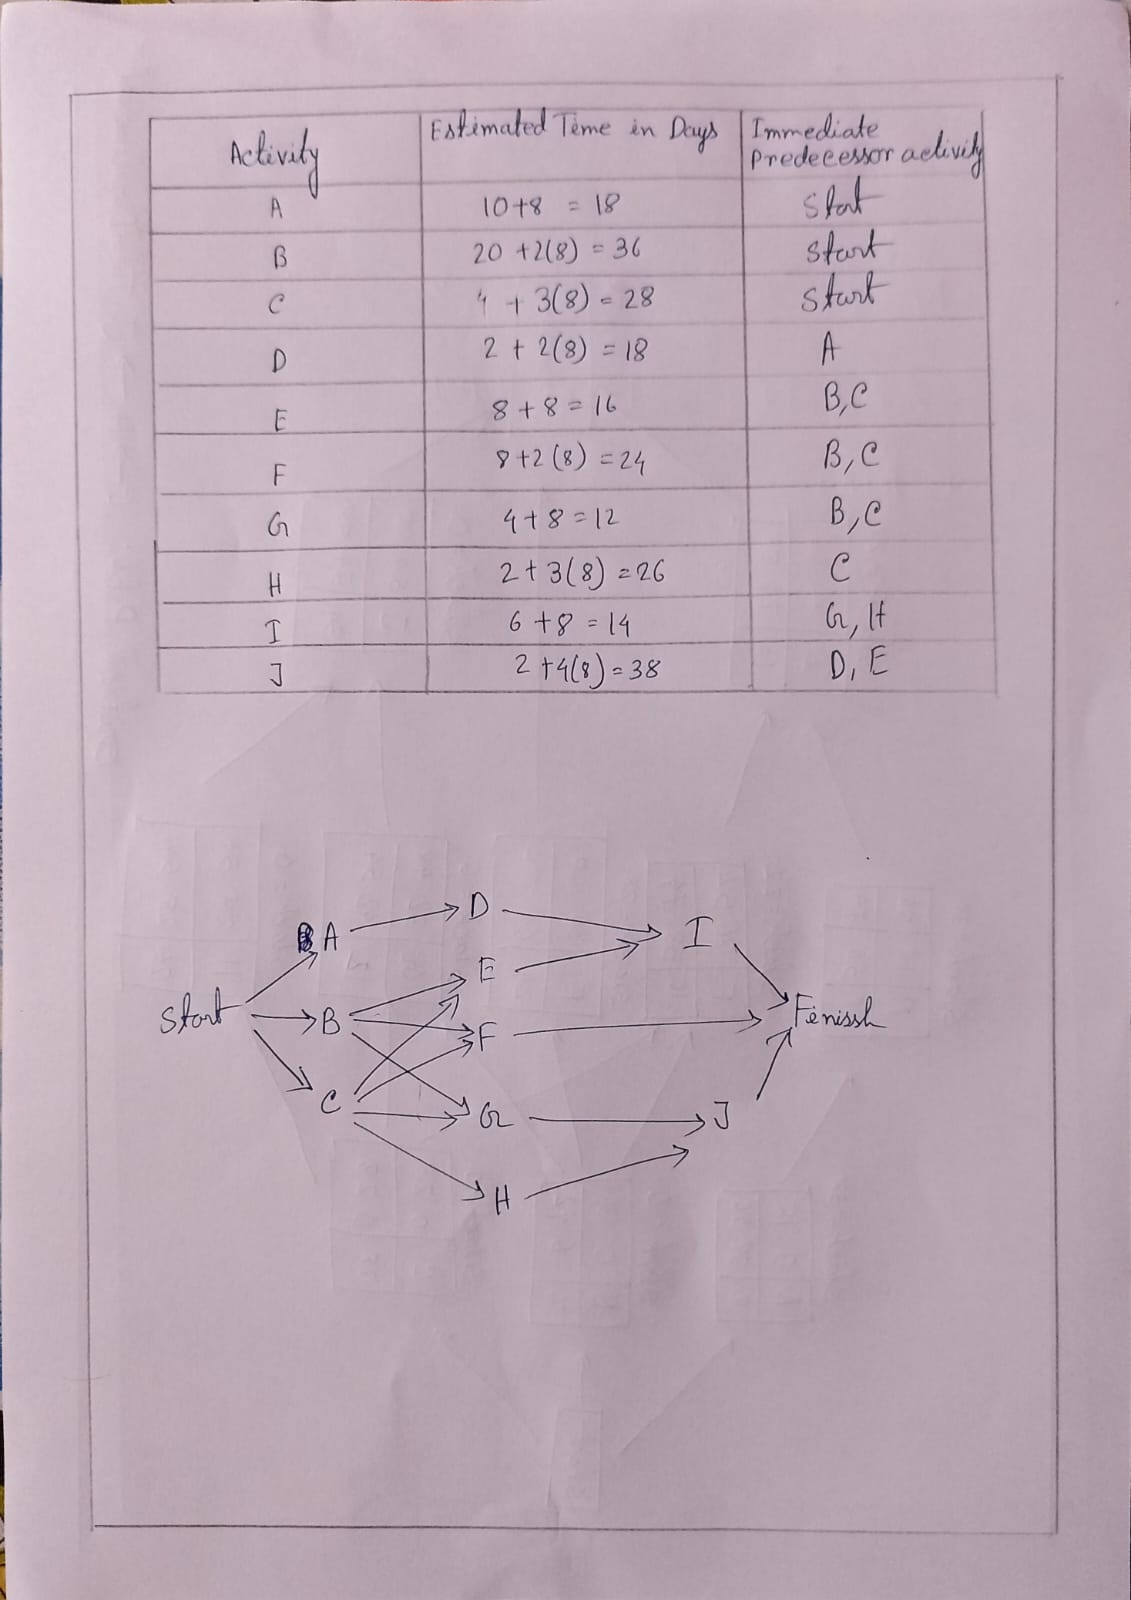 Activity Estimated Time in Days Immediate
Predecessor activity
A 10+8 = 18 Start
B 20 +2(8) = 36 Start
C 4 + 3(8) = 28 Start
D 2 + 2(8) = 18 A
E 8 + 8 = 16 B,C
F 8+2(8) = 24 B,C
G 4+8=12 B,C
H 2+3(8) = 26 C
I 6+8 = 14 G,H
J 2+4(8)=38 D,E
D
A I
E
Start B F Finissh
C G J
H